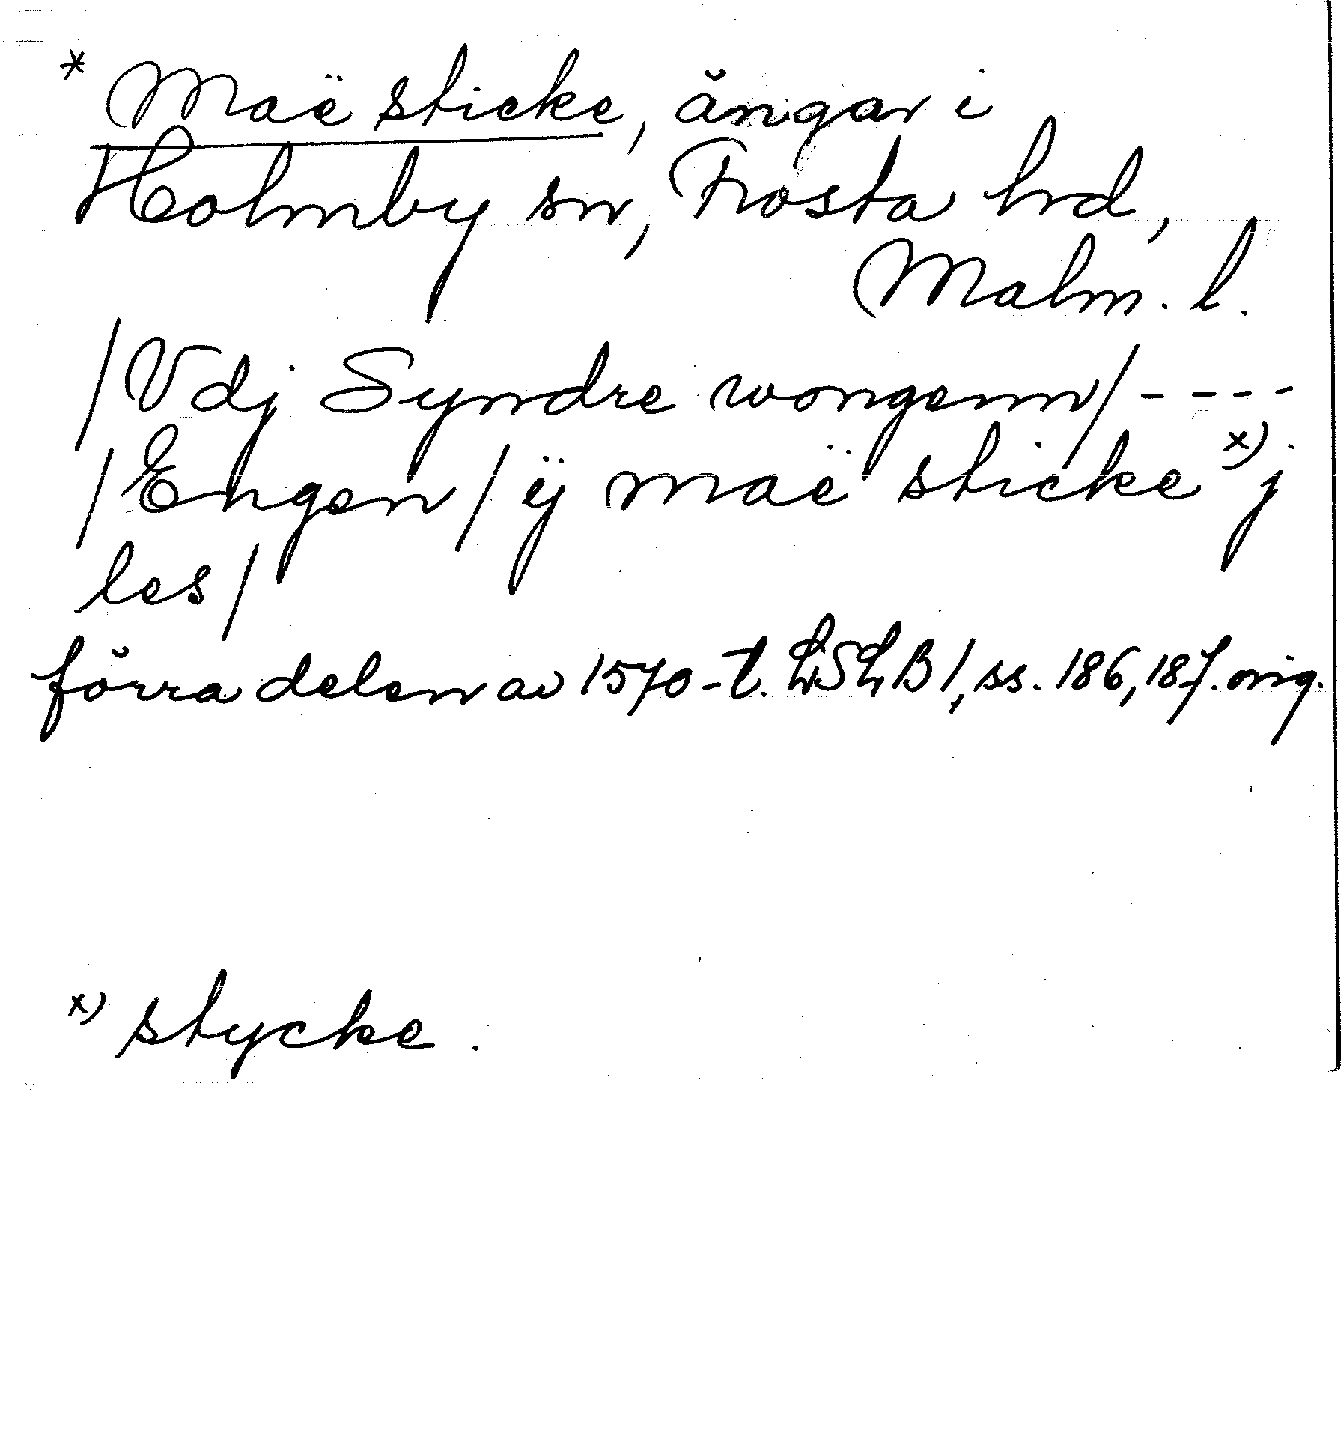 * Maë sticke, ängar i
Holmby sn, Frosta hrd,
Malm. l.
/Vdj Syndre wongenn/----
/Engen/ ÿ maë sticke x) j
les/
förra delen av 1570-t. LSLB 1, ss. 186, 187. orig.
x) stycke.